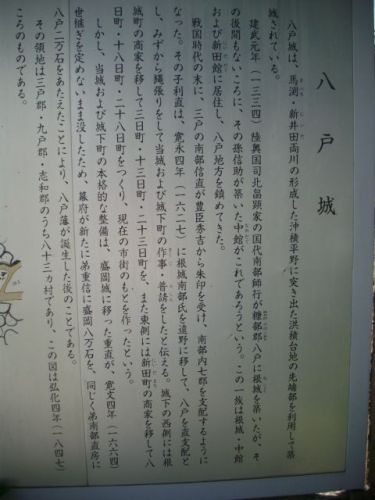 八戸城
八戸城は、馬渕・新井田両川の形成した沖積平野に突き出た洪積台地の先端部を利用して築
城されている。
建武元年(一三三四)陸奥国司北畠顕家の国代南部師行が糠部郡八戸に根城を築いたが、そ
の後間もないころに、その孫信助が築いた中館がこれであろうという。この一族は根城・中館
および新田館に居住し、八戸地方を鎮めてきた。
戦国時代の末に、三戸の南部信直が豊臣秀吉から朱印を受け、南部内七郡を支配するように
なった。その子利直は、寛永四年(一六二七)に根城南部氏を遠野に移して、八戸を直支配と
し、みずから縄張りをして当城および城下町の作事・普請をしたと伝える。城下の西側には根
城町の商家を移して三日町・十三日町・二十三日町を、また東側には新田町の商家を移して八
日町・十八日町・二十八日町をつくり、現在の市街のもとを作ったという。
しかし、当城および城下町の本格的な整備は、盛岡城に移った重直が、寛文四年(一六六四)
世継ぎを定めないまま没したため、幕府が新たに弟重信に盛岡八万石を、同じく弟南部直房に
八戸二万石をあたえたことにより、八戸藩が誕生した後のことである。
その領地は三戸郡・九戸郡・志和郡のうち八十三カ村であり、この図は弘化四年(一八四七)
ころのものである。